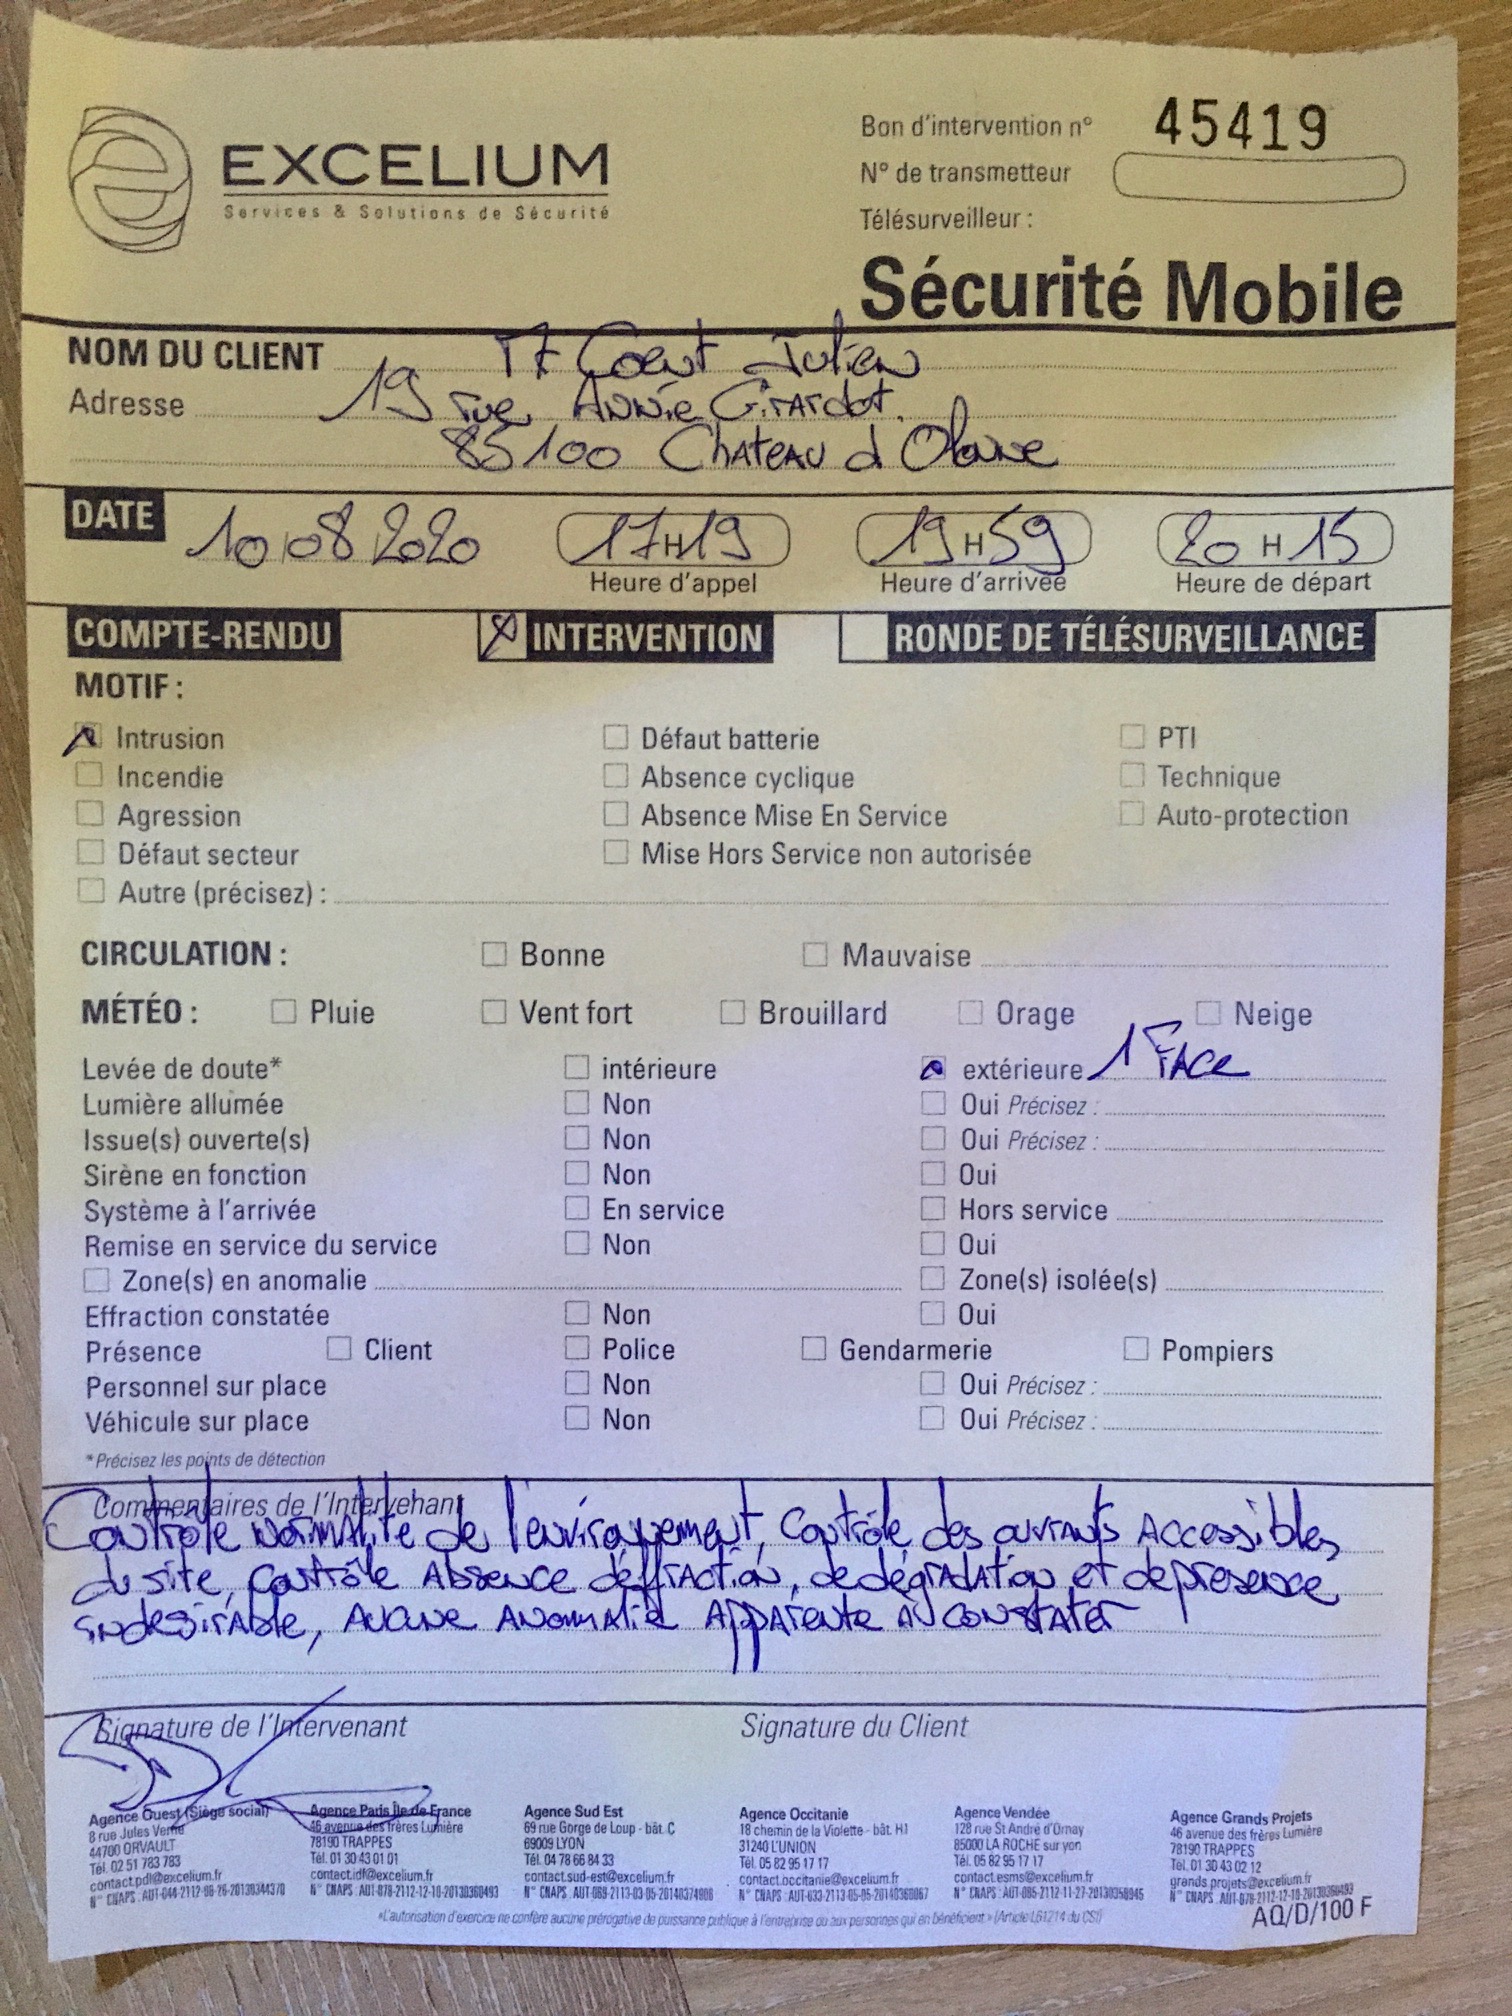 EXCELIUM
Services & Solutions de Sécurité
Bon d'intervention n° 45419
N° de transmetteur
Télésurveilleur :
Sécurité Mobile
NOM DU CLIENT Coent Julien
Adresse 19 rue Annie Girardot
85100 Chateau d Olonne
DATE 10 08 2020 17H19 19H59 20H15
Heure d'appel Heure d'arrivée Heure de départ
COMPTE-RENDU INTERVENTION RONDE DE TÉLÉSURVEILLANCE
MOTIF :
Intrusion Défaut batterie PTI
Incendie Absence cyclique Technique
Agression Absence Mise En Service Auto-protection
Défaut secteur Mise Hors Service non autorisée
Autre (précisez) :
CIRCULATION : Bonne Mauvaise
MÉTÉO : Pluie Vent fort Brouillard Orage Neige
Levée de doute* intérieure extérieure 1 FACE
Lumière allumée Non Oui Précisez :
Issue(s) ouverte(s) Non Oui Précisez :
Sirène en fonction Non Oui
Système à l'arrivée En service Hors service
Remise en service du service Non Oui
Zone(s) en anomalie Zone(s) isolée(s)
Effraction constatée Non Oui
Présence Client Police Gendarmerie Pompiers
Personnel sur place Non Oui Précisez :
Véhicule sur place Non Oui Précisez :
*Précisez les points de détection
Commentaires de l'Intervenant
Contrôle normalite de l'environnement, Contrôle des ouvrants Accessibles
du site, contrôle Absence d'effraction, de dégradation et de presence
indesirable, Aucune Anomalie Apparente à constater
Signature de l'Intervenant Signature du Client
Agence Ouest (Siège social) Agence Paris Île de France Agence Sud Est Agence Occitanie Agence Vendée Agence Grands Projets
8 rue Jules Verne 46 avenue des frères Lumière 69 rue Gorge de Loup - bât. C 18 chemin de la Violette - bât. H1 128 rue St André d'Ornay 46 avenue des frères Lumière
44700 ORVAULT 78190 TRAPPES 69009 LYON 31240 L'UNION 85000 LA ROCHE sur yon 78190 TRAPPES
Tél. 02 51 783 783 Tél. 01 30 43 01 01 Tél. 04 78 66 84 33 Tél. 05 82 95 17 17 Tél. 05 82 95 17 17 Tél. 01 30 43 02 12
contact.pdl@excelium.fr contact.idf@excelium.fr contact.sud-est@excelium.fr contact.occitanie@excelium.fr contact.esms@excelium.fr grands.projets@excelium.fr
N° CNAPS : AUT-044-2112-08-26-20130344370 N° CNAPS : AUT-078-2112-12-10-20130360493 N° CNAPS : N° CNAPS : N° CNAPS : N° CNAPS : AUT-078-2112-12-10-20130360493
«L'autorisation d'exercice ne confère aucune prérogative de puissance publique à l'entreprise ou aux personnes qui en bénéficient» (Article L61214 du CSI)
AQ/D/100 F